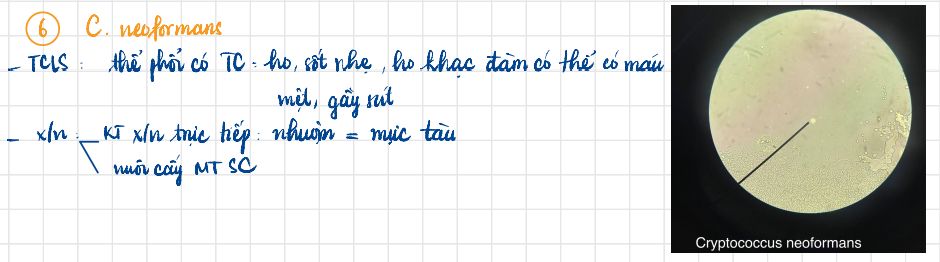 6 C. neoformans
- TCLS: thể phổi có TC: ho, sốt nhẹ, ho khạc đàm có thể có máu
mệt, gầy sút
- x/n: KT x/n trực tiếp: nhuộm = mực tàu
nuôi cấy MT SC
Cryptococcus neoformans